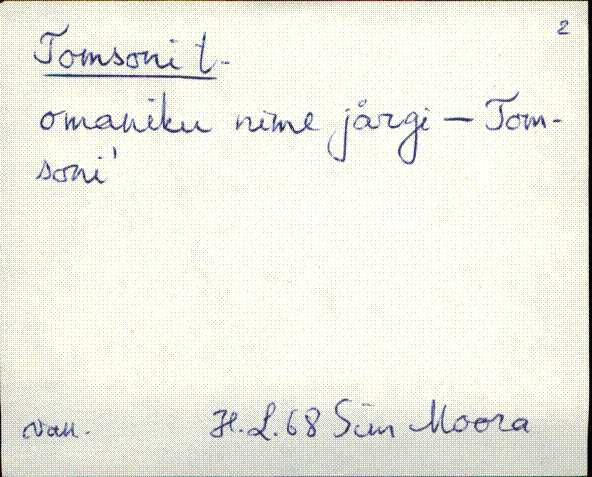 2
Tomsoni t.
omaniku nime järgi – Tom-
soni'
van.
H. L. 68 Sim Moora